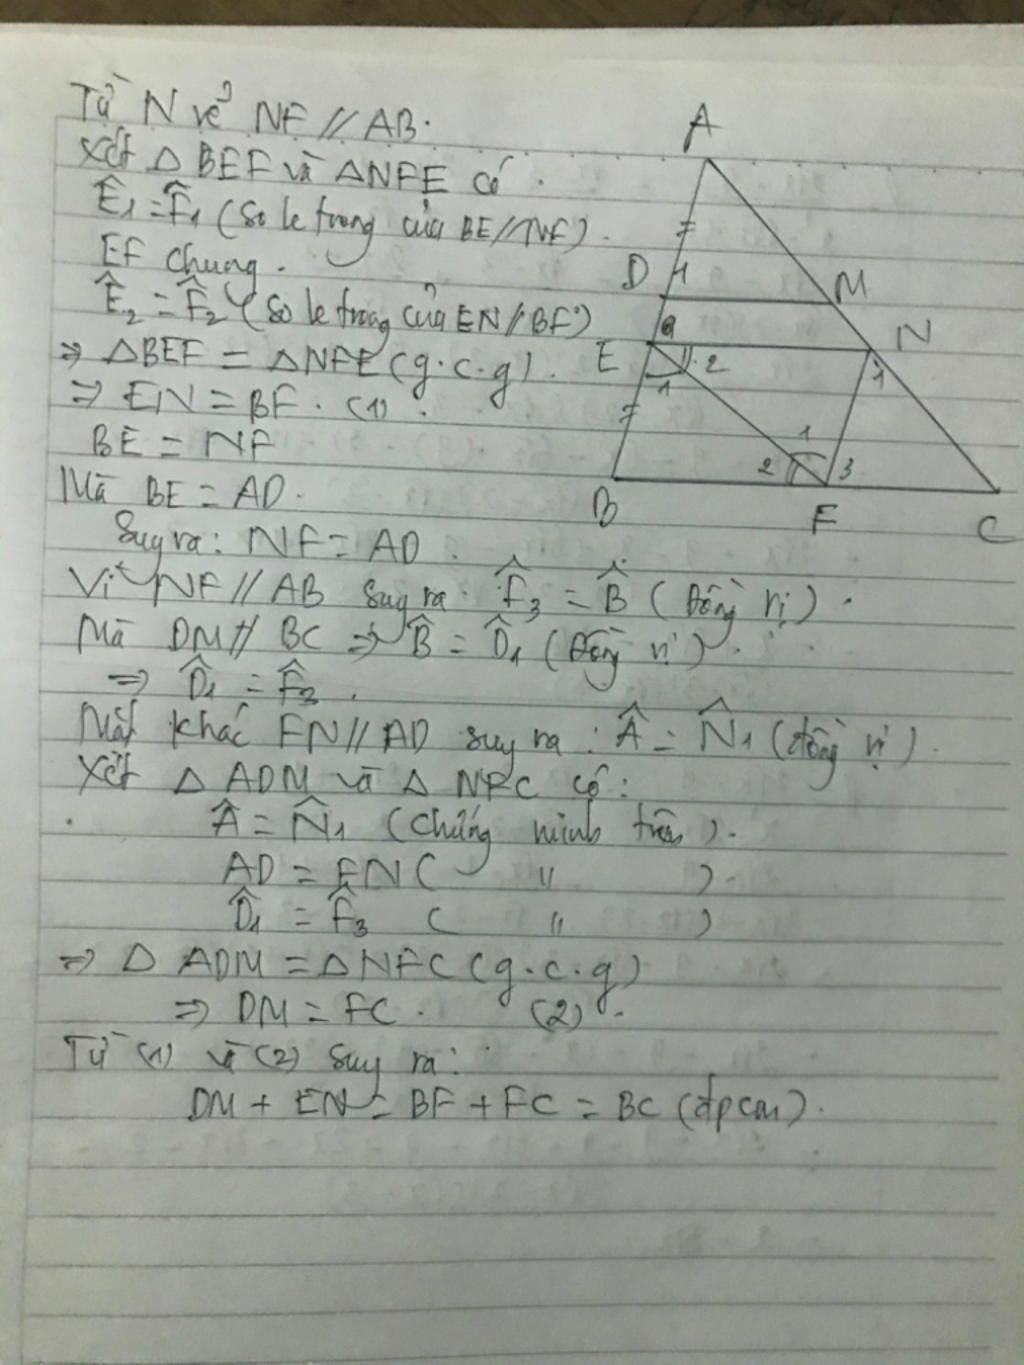 Từ N vẽ NF // AB.
Xét △ BEF và △NFE có.
Ê₁ = F̂₁ (so le trong của BE//NF).
EF chung.
Ê₂ = F̂₂ (so le trong của EN//BF)
⇒ △BEF = △NFE (g.c.g).
⇒ EN = BF. (1).
BE = NF
Mà BE = AD.
Suy ra: NF = AD.
Vì NF // AB suy ra: F̂₃ = B̂ (đồng vị).
Mà DM // BC ⇒ B̂ = D̂₁ (đồng vị).
⇒ D̂₁ = F̂₃.
Mặt khác FN // AD suy ra: Â = N̂₁ (đồng vị).
Xét △ ADM và △ NFC có:
Â = N̂₁ (chứng minh trên).
AD = FN ( " ).
D̂₁ = F̂₃ ( " )
⇒ △ ADM = △NFC (g.c.g)
⇒ DM = FC. (2).
Từ (1) và (2) suy ra:
DM + EN = BF + FC = BC (đpcm).
A
D 1
M
N
E 2
1
1
1
2 3
B F C